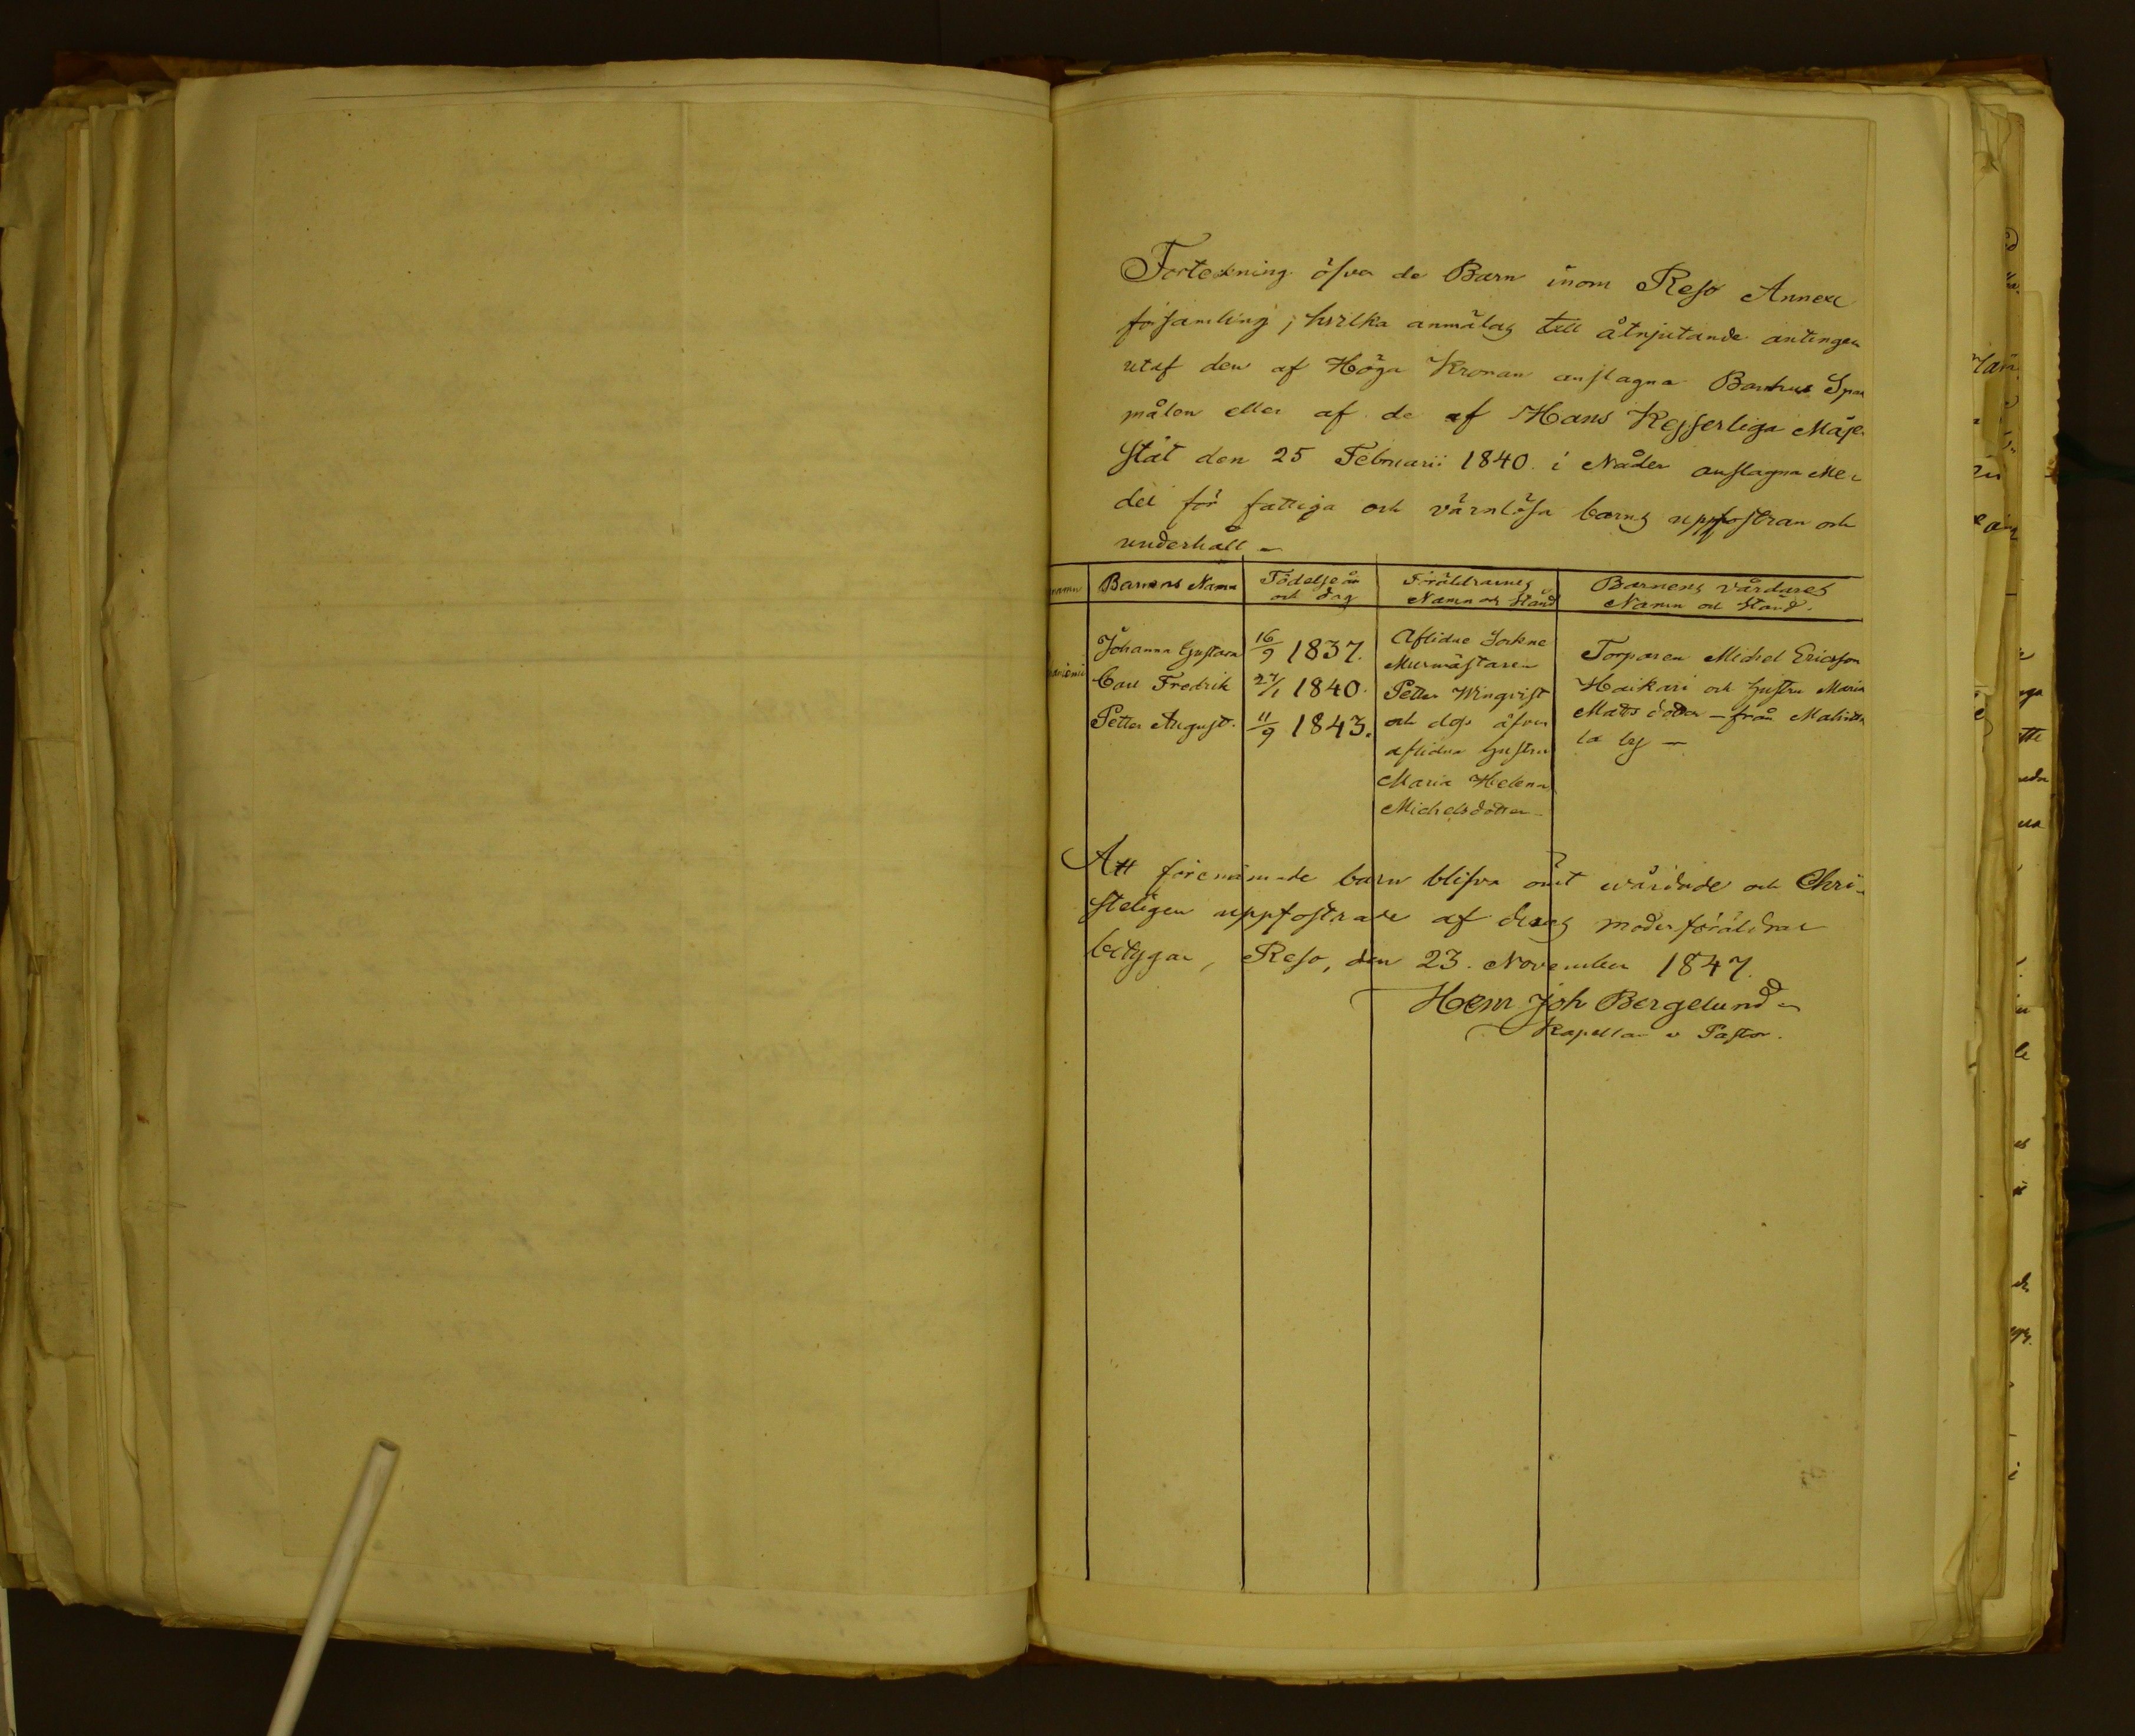 Forteckning öfver de Barn inom Reso Annex
församling, hvilka anmälas till åtnjutande antingen
utaf den af Höga Kronan anslagna Barnhus Span
målen eller af de af Hans Kejserliga Maje
stät den 25 Februarii 1840 i Nåder anslagna Me
del för fattiga och värnlösa barns uppfostran och
underhåll
namn | Barnens Namn | Födelse år och dag | Föräldrarnes Namn och stånd | Barnens vårdares Namn och stånd.
Johanna Gustava 16/9 1837.
Carl Fredrik 27/1 1840.
Petter August. 11/9 1843.
Aflidne Sockne
Murmästaren
Petter Winqvist
och dess äfven
aflidna hustru
Maria Helena
Michelsdotter
Torparen Michel Ericsson
Haikari och hustru Maria
Matts dotter - från
la by -
Att förenämnde barn blifva ömt wårdade och Chri-
steligen uppfostrade af deras moderföräldrar
betygar, Reso, den 23. November 1847.
Herm Joh Bergelund
Kapellan v Pastor.